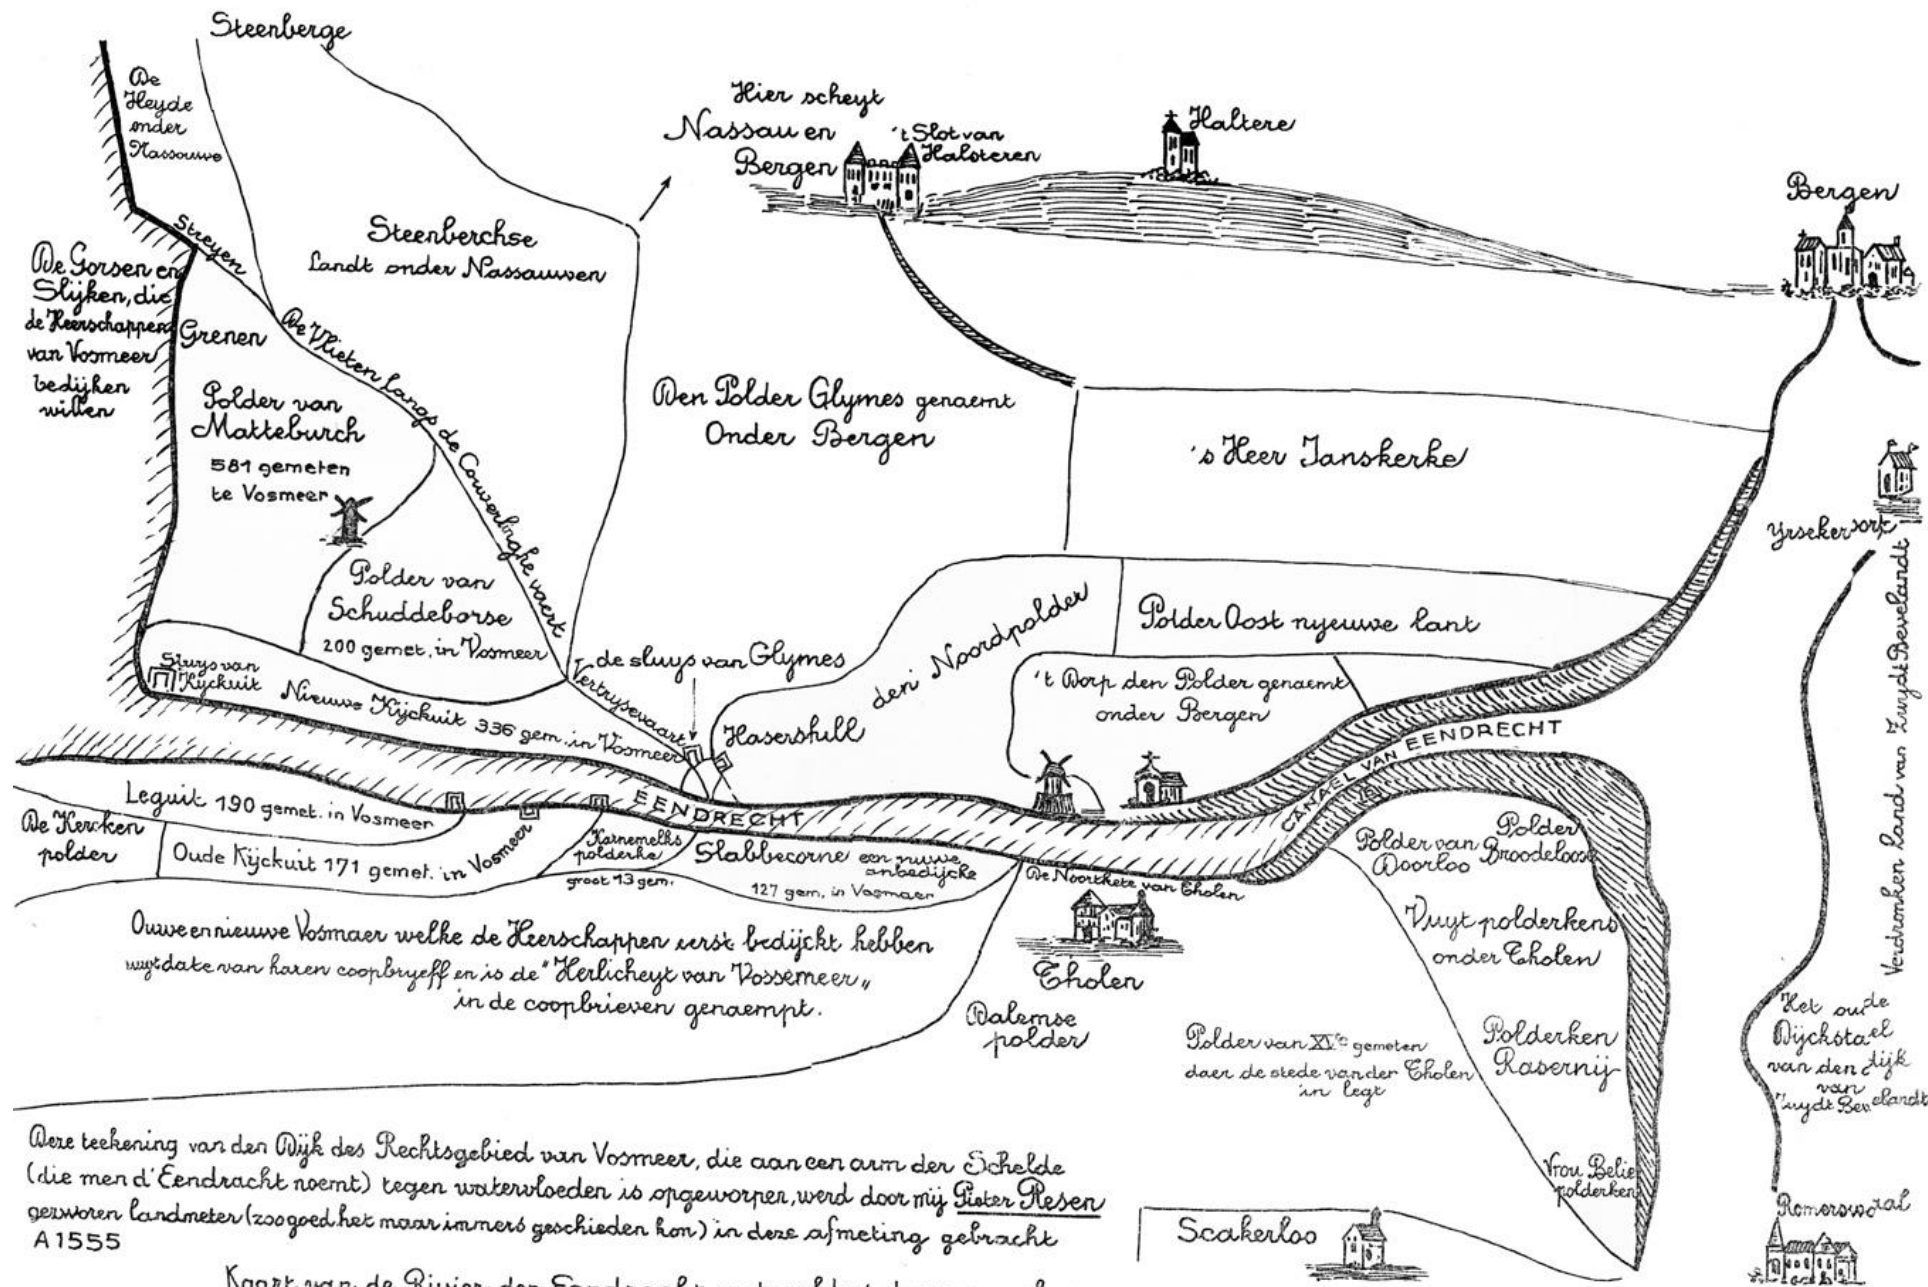 Steenberge
De
Heyde
onder
Nassouwe
Hier scheyt
Nassau en
Bergen
't Slot van
Halsteren
Haltere
Bergen
Streyen
Steenberchse
Landt onder Nassauwen
De Gorsen en
Slijken, die
de Heerschappen
van Vosmeer
bedijken
willen
Grenen
De Vlieten langs de Couwerlinghe vaert
Polder van
Matteburch
581 gemeten
te Vosmeer
Den Polder Glymes genaemt
Onder Bergen
's Heer Janskerke
Yrseker oort
Verdronken Land van Zuydt Bevelandt
Polder van
Schuddeborse
200 gemet. in Vosmeer
Sluys van
Kyckuit
Nieuwe Kijckuit 336 gem. in Vosmeer
Vertrysevaart
de sluys van Glymes
Hasershill
den Noordpolder
Polder Oost nyeuwe lant
't Dorp den Polder genaemt
onder Bergen
CANAEL VAN EENDRECHT
EENDRECHT
Leguit 190 gemet. in Vosmeer
De Kercken
polder
Oude Kijckuit 171 gemet. in Vosmeer
Karnemelks
polderke
groot 13 gem.
Slabbecorne een nuwe
anbedijcke
127 gem. in Vosmaer
De Noortkete van Tholen
Tholen
Polder van
Doorloo
Polder
Broodeloos
Vuyt polderkens
onder Tholen
Ouwe en nieuwe Vosmaer welke de Heerschappen eerst bedijckt hebben
uytdate van haren coopbryeff en is de "Herlicheyt van Vossemeer"
in de coopbrieven genaempt.
Dalemse
polder
Polder van XVc gemeten
daer de stede van der Tholen
in legt
Polderken
Rasernij
Het oude
Dijckstael
van den dijk
van
Zuydt Bevelandt
Vrou Belie
polderken
Romerswaal
Scakerloo
Deze teekening van den Dijk des Rechtsgebied van Vosmeer, die aan een arm der Schelde
(die men d'Eendracht noemt) tegen watervloeden is opgeworpen, werd door mij Pieter Resen
gezworen landmeter (zoo goed het maar immers geschieden kon) in deze afmeting gebracht
A 1555
Kaart van de Rivier der Eendracht